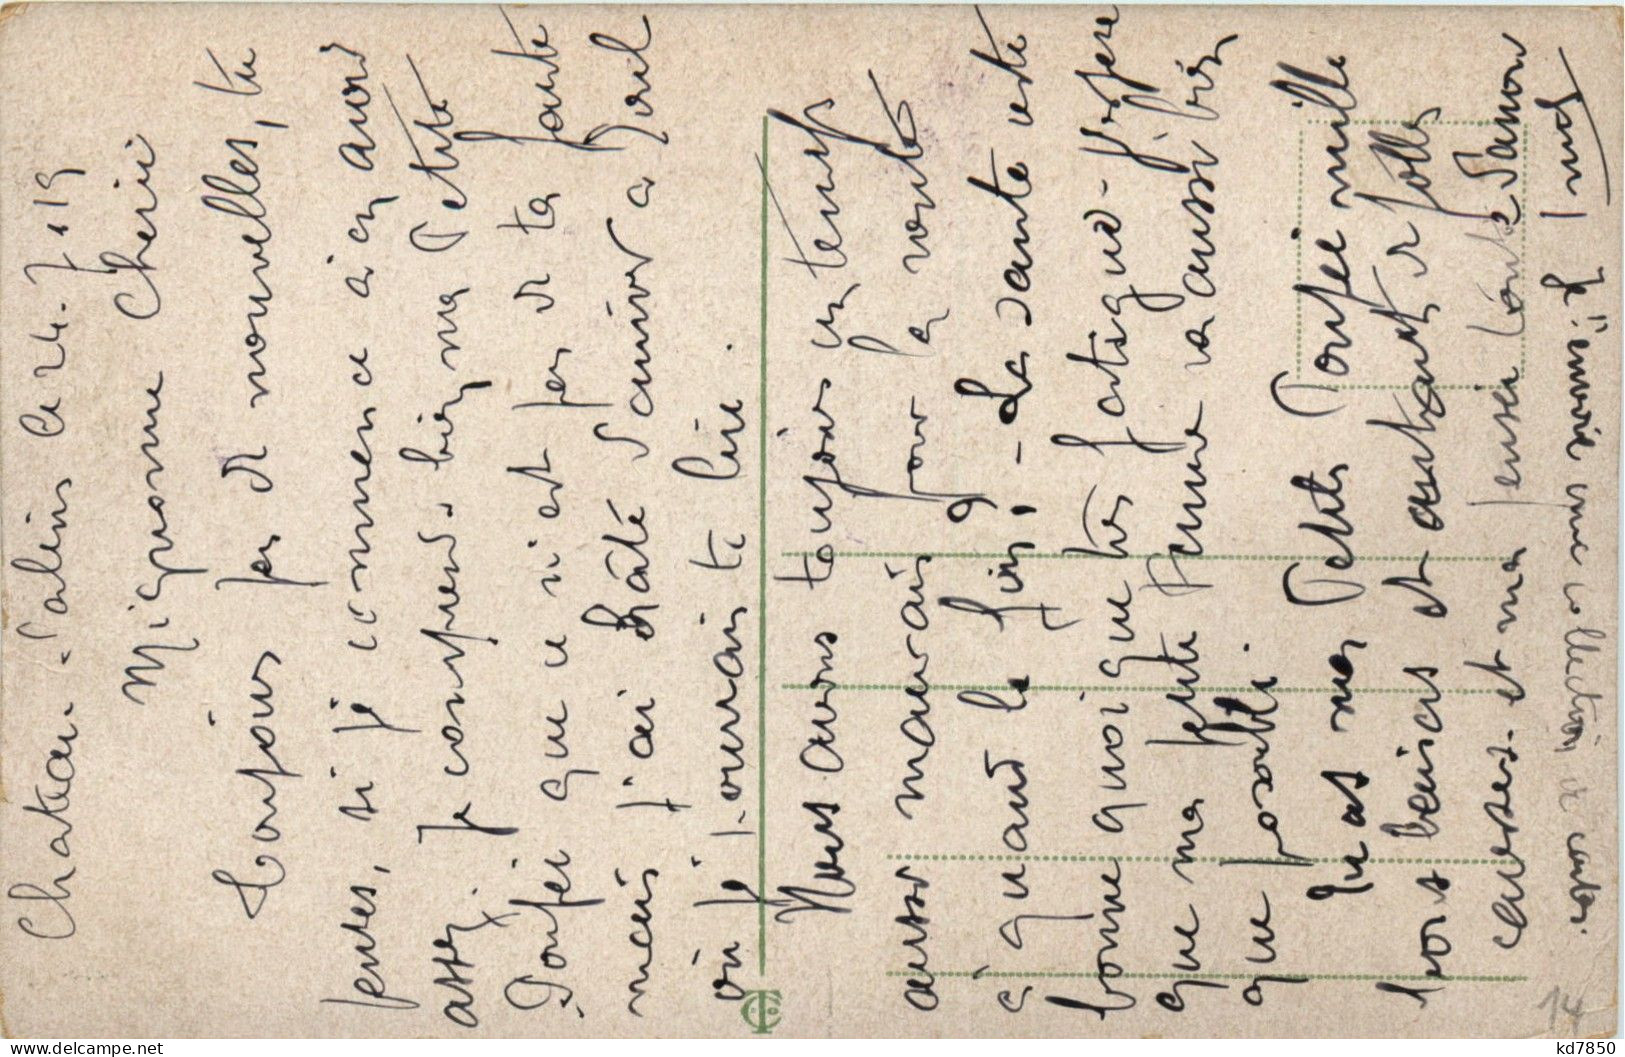 Chateau-Salins ce 24.7.19
Mignonne Chérie
Toujours pas de nouvelles, tu
penses, si je commence à en avoir
assez. Je comprends bien, ma Petite
Poupée que ce n'est pas de ta faute
mais j'ai hâte d'arriver à
où je pourrais te lire.
Nous avons toujours un temps
aussi mauvais pour la route
à quand la fin, - La santé reste
bonne quoique très fatigué - J'espère
que ma petite Femme va aussi bien
que possible.
mes Petite Poupée mille
bons baisers et autant de folles
caresses. et ma pensée
une collection de cartes.
14
kd7850
delcampe.net